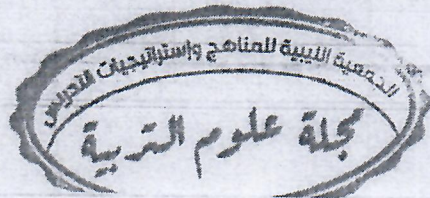 الجمعية الليبية للمناهج وإستراتيجيات التدريس
مجلة علوم التربية